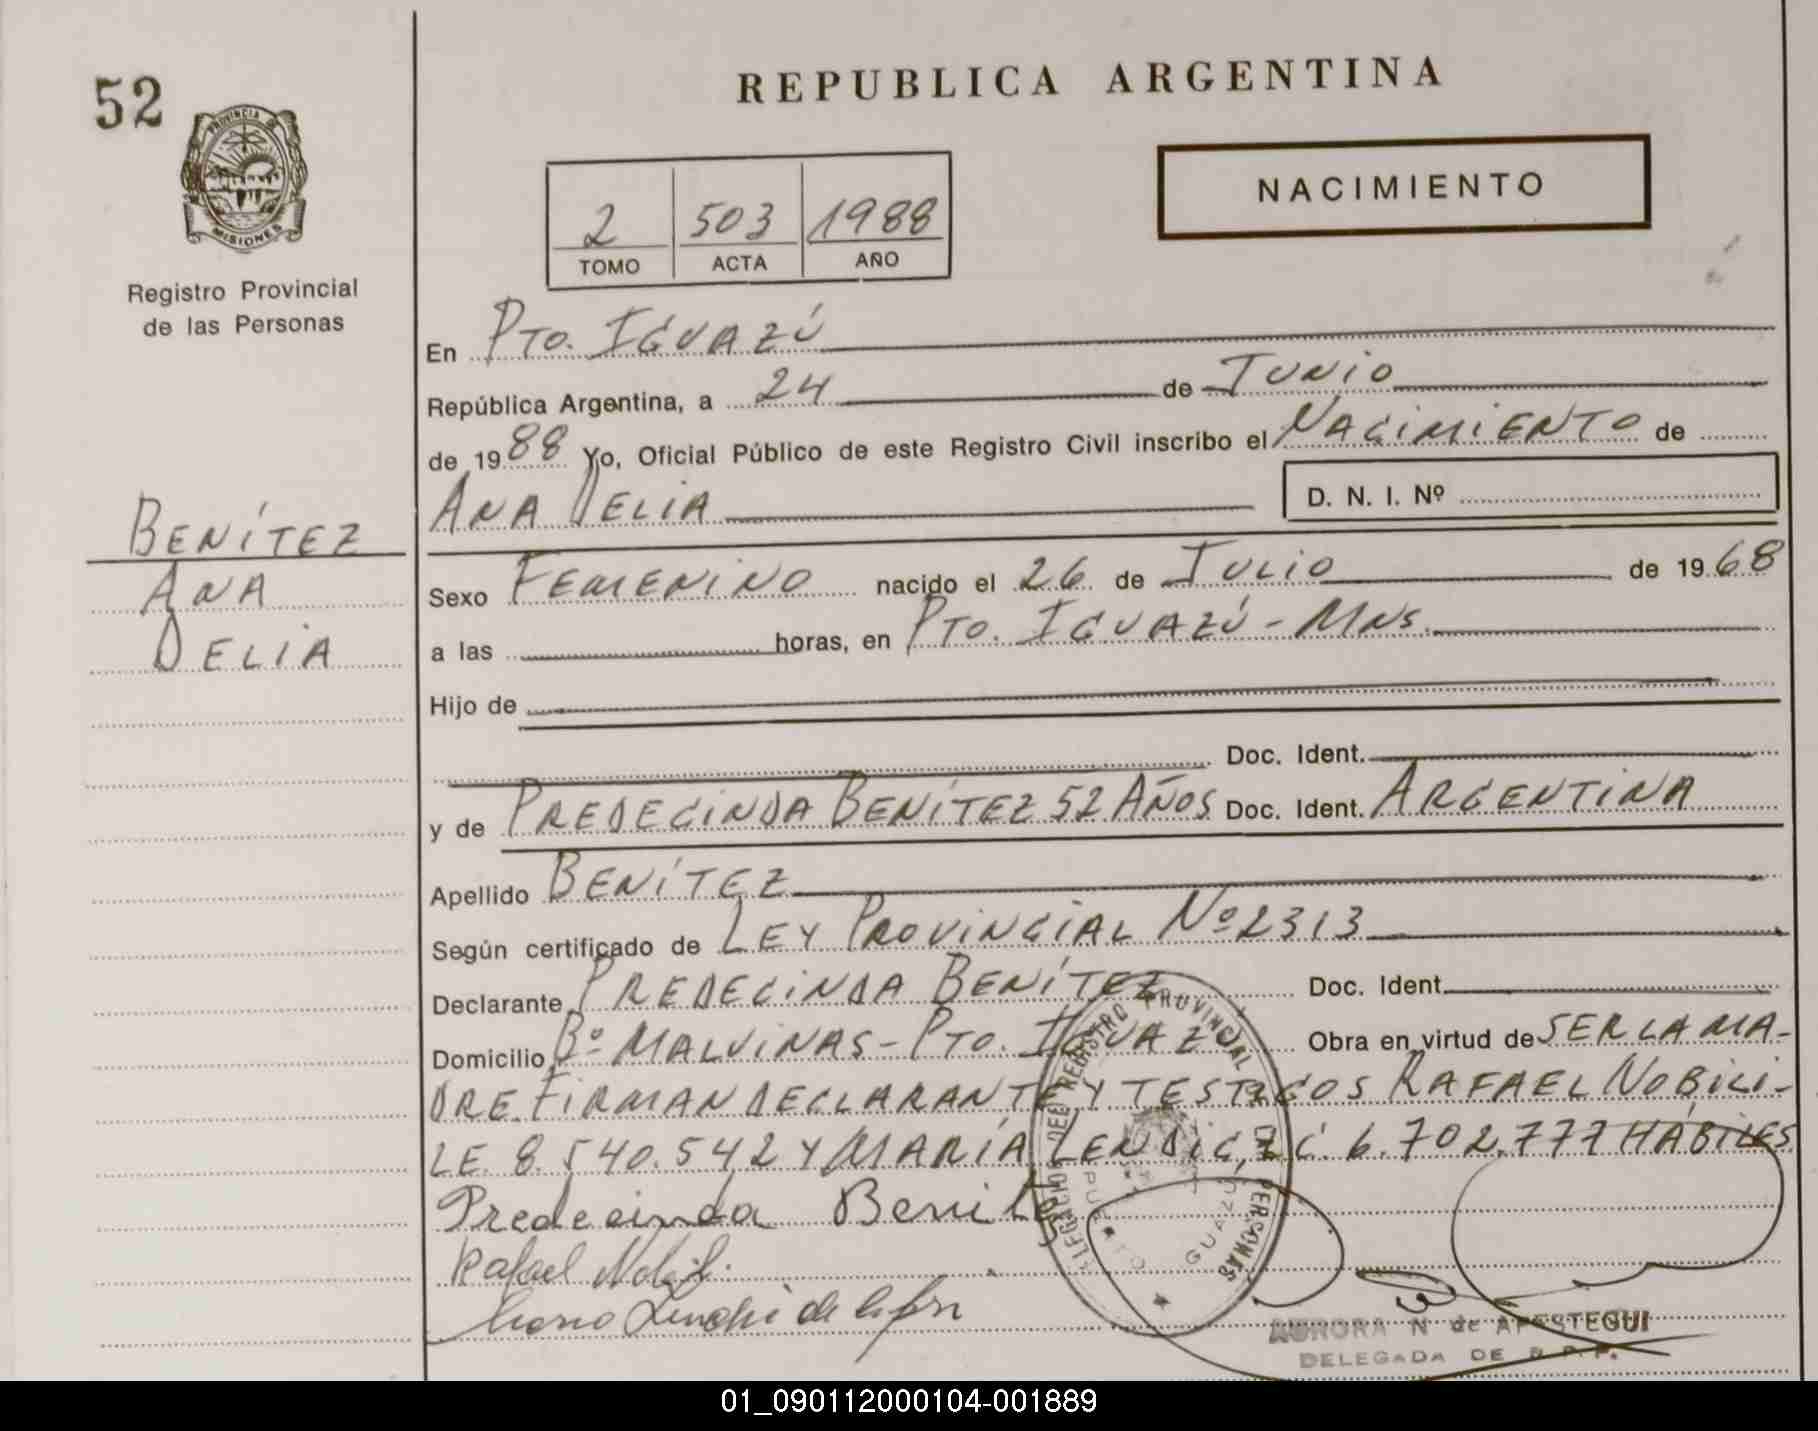 52
PROVINCIA DE
MISIONES
Registro Provincial
de las Personas
BENÍTEZ
ANA
DELIA
REPUBLICA ARGENTINA
NACIMIENTO
2 503 1988
TOMO ACTA AÑO
En PTO. IGUAZÚ
República Argentina, a 24 de JUNIO
de 1988 Yo, Oficial Público de este Registro Civil inscribo el NACIMIENTO de
ANA DELIA D. N. I. Nº
Sexo FEMENINO nacido el 26 de JULIO de 1968
a las horas, en PTO. IGUAZÚ - MNS.
Hijo de
Doc. Ident.
y de PREDECINDA BENÍTEZ 52 AÑOS Doc. Ident. ARGENTINA
Apellido BENÍTEZ
Según certificado de LEY PROVINCIAL Nº 2313
Declarante PREDECINDA BENÍTEZ Doc. Ident.
Domicilio Bº MALVINAS - PTO. IGUAZÚ Obra en virtud de SER LA MA-
DRE. FIRMAN DECLARANTE Y TESTIGOS RAFAEL NOBILI-
LE. 8.540.542 Y MARÍA LENDIC, LC. 6.702.777 HÁBILES
Predecinda Benitez
Rafael Nobili
DEL REGISTRO PROVINCIAL DE LAS PERSONAS
PUERTO IGUAZU
AURORA N de APESTEGUI
DELEGADA DE R.P.P.
01_090112000104-001889